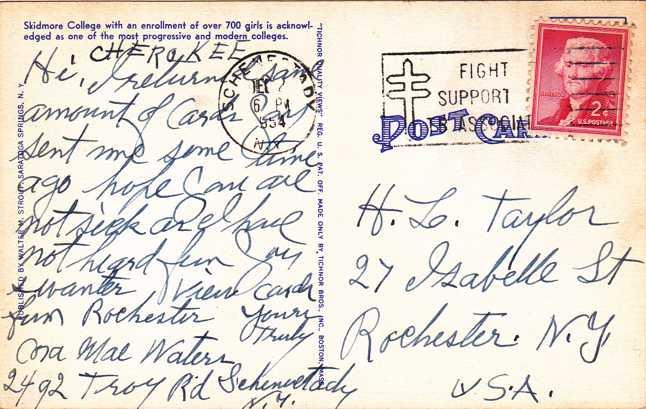 Skidmore College with an enrollment of over 700 girls is acknowl-
edged as one of the most progressive and modern colleges.
CHEROKEE
Hi, I return same
amount of Cards you
sent me some time
ago hope you are
not sick as I have
not heard fum you
I wanter View Cards
fum Rochester Yours
Truly
Cora Mae Waters
2492 Troy R'd Schenectady
N.Y.
PUBLISHED BY WALTER M. STROUP, SARATOGA SPRINGS, N. Y.
"TICHNOR QUALITY VIEWS" REG. U. S. PAT. OFF. MADE ONLY BY TICHNOR BROS., INC., BOSTON, MASS.
SCHENECTADY
2
6 PM
1954
N.Y.
FIGHT
SUPPORT
TB ASSOCIAT
POST CAR
2¢
U.S. POSTAGE
H. L. Taylor
27 Isabelle St
Rochester. N.Y.
U.S.A.